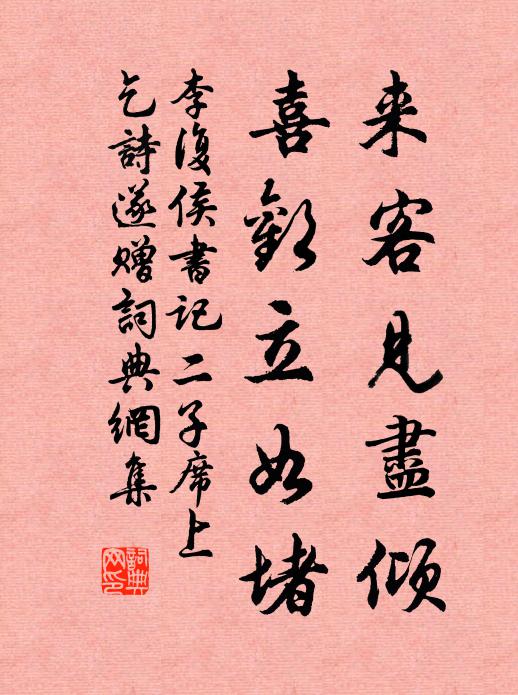 来客見盡傾
喜歡立如堵
李復侯書記二子席上
乞詩遂贈詞典網集
詞典網印